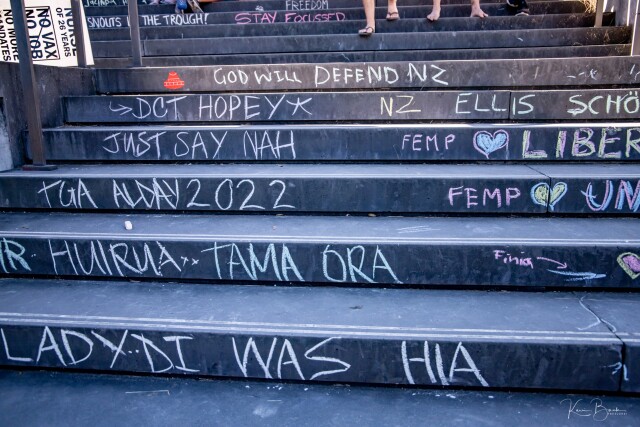 FREEDOM
SNOUTS IN THE TROUGH! STAY FOCUSSED
NO VAX
NO JOB
OF 26 YEARS
GOD WILL DEFEND NZ
DCT HOPEY NZ ELLIS SCHÖ
JUST SAY NAH FEMP LIBER
TGA ALDAY 2022 FEMP UN
HUIRUA TAMA ORA
LADY DI WAS HIA